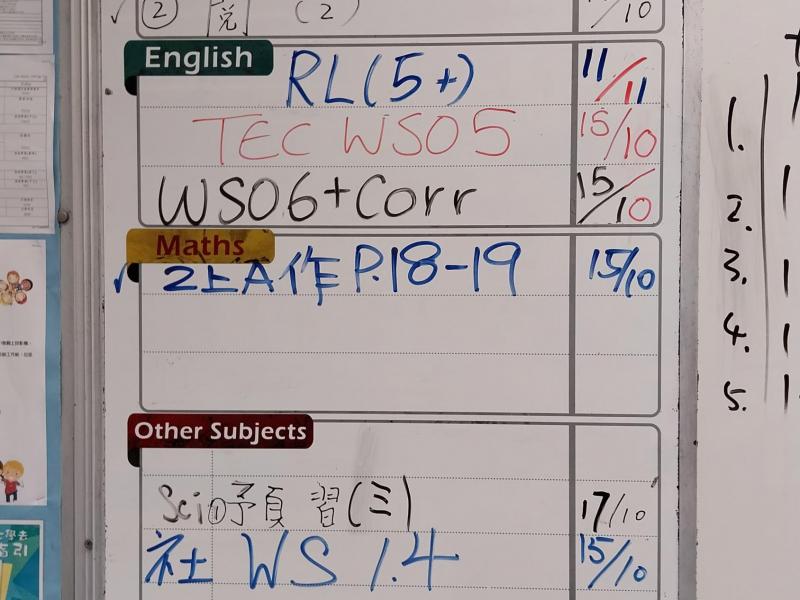 ② 說 (2) /10
English
RL(5+) 11/11
TEC WS05 15/10
WS06+Corr 15/10
Maths
✓ 2上A作 P.18-19 15/10
Other Subjects
Sci①預習(三) 17/10
社 WS 1.4 15/10
1.
2.
3.
4.
5.